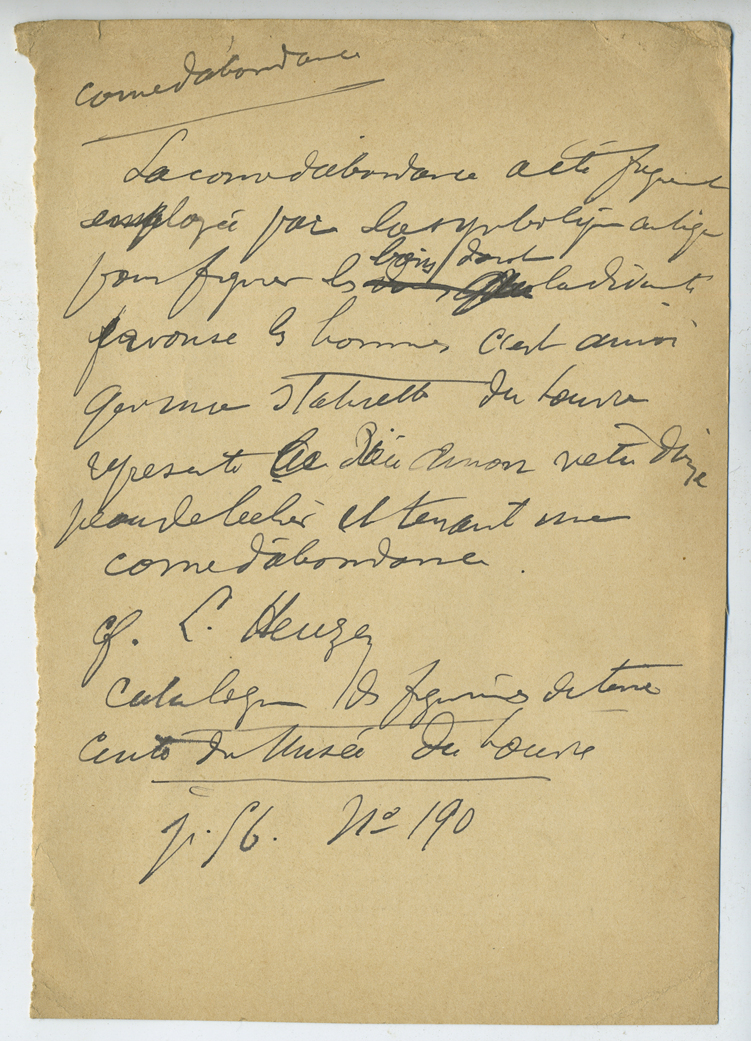 corne d'abondance
La corne d'abondance a été fréquent
employée par la symbolique antique
pour figurer les biens dont la divinité
favorise les hommes c'est ainsi
qu'une statuette du Louvre
représente le Dieu Amon vetu d'une
peau de belier et tenant une
corne d'abondance.
cf. L. Heuzey
Catalogue des figurines de terre
cuite du Musée du Louvre
p. 56. No 190